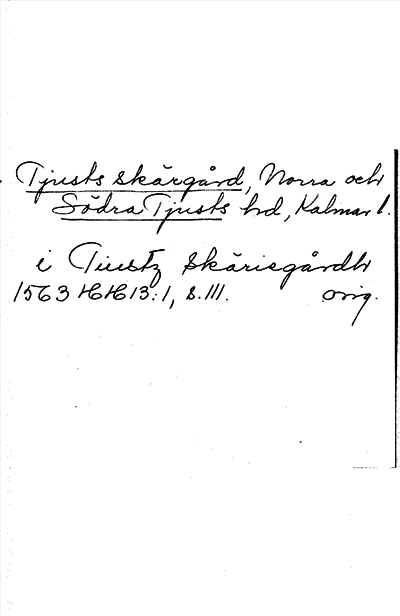 Tjusts skärgård, Norra och
Södra Tjusts hd, Kalmar l.
i Tiustz Skäriegårdh
1563 HH 13:1, s. 111. orig.